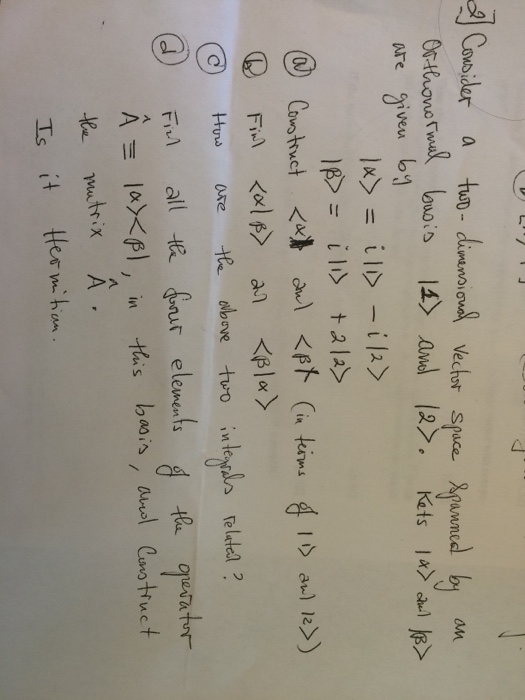 2] Consider a two-dimensional vector space spanned by an
orthonormal basis |1> and |2>. Kets |α> and |β>
are given by
|α> = i|1> - i|2>
|β> = i|1> + 2|2>
(a) Construct <α| and <β| (in terms of |1> and |2>)
(b) Find <α|β> and <β|α>
(c) How are the above two integrals related?
(d) Find all the four elements of the operator
Â ≡ |α><β|, in this basis, and Construct
the matrix Â.
Is it Hermitian.